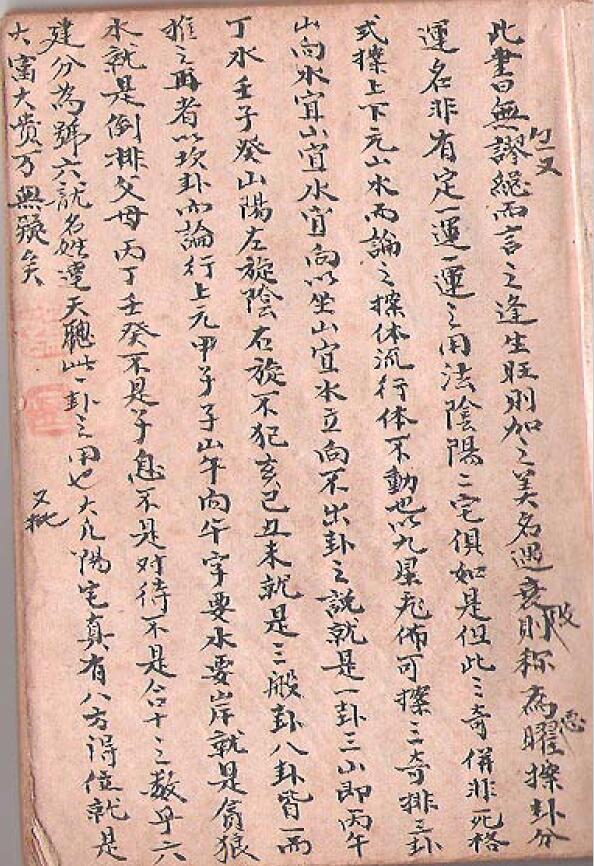 此書曰無謬總而言之逢生旺則加之美名遇衰則稱為曜操卦分
惡
運名非有定一運一運之用法陰陽二宅俱如是但此三奇併非死格
式操上下元山水而論之操体流行体不動也以九星飛佈可操三奇排三卦
山向水宜山宜水宜向以坐山宜水立向不出卦之說就是一卦三山即丙午
丁水壬子癸山陽左旋陰右旋不犯亥己丑未就是三般卦八卦皆一而
推之再者以坎卦而論行上元甲子子山午向午字要水要岸就是貪狼
水就是倒排父母丙丁壬癸不是子息不是对待不是合十之数乎六
建分為號六就名姓運天聰此一卦之用也大凡陽宅真有八方得位就是
又批
大富大貴万無疑矣